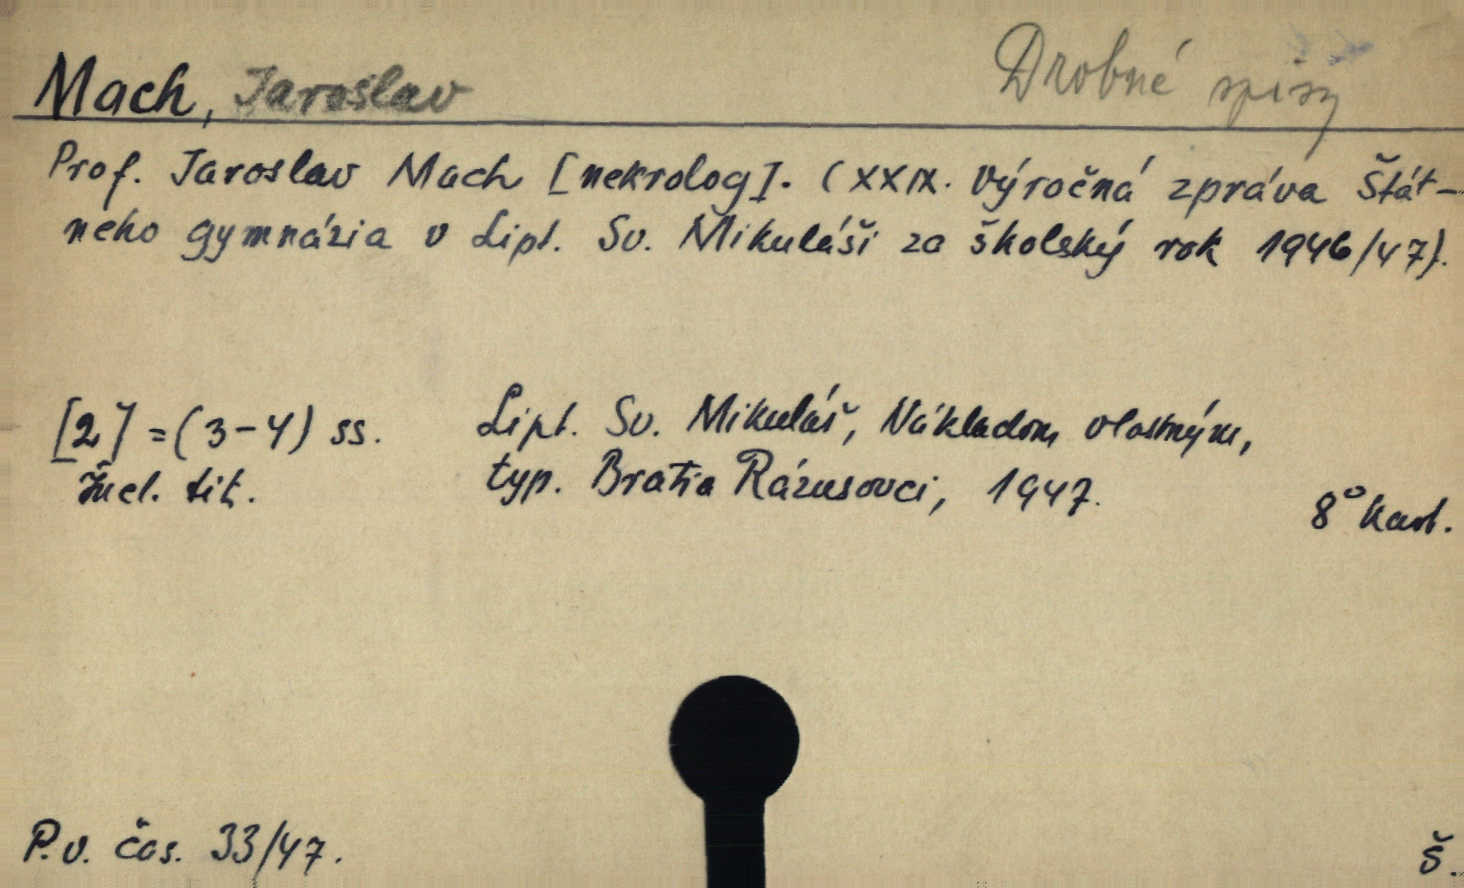 Mach, Jaroslav
Drobné spisy
Prof. Jaroslav Mach [nekrolog]. (XXIX. Výročná zpráva Štát-
neho gymnázia v Lipt. Sv. Mikuláši za školský rok 1946/47).
[2] = (3-4) ss.
Lipt. Sv. Mikuláš, Nákladom vlastným,
typ. Bratia Rázusovci, 1947.
tit.
8° Kart.
P.v. čas. 33/47.
Š.